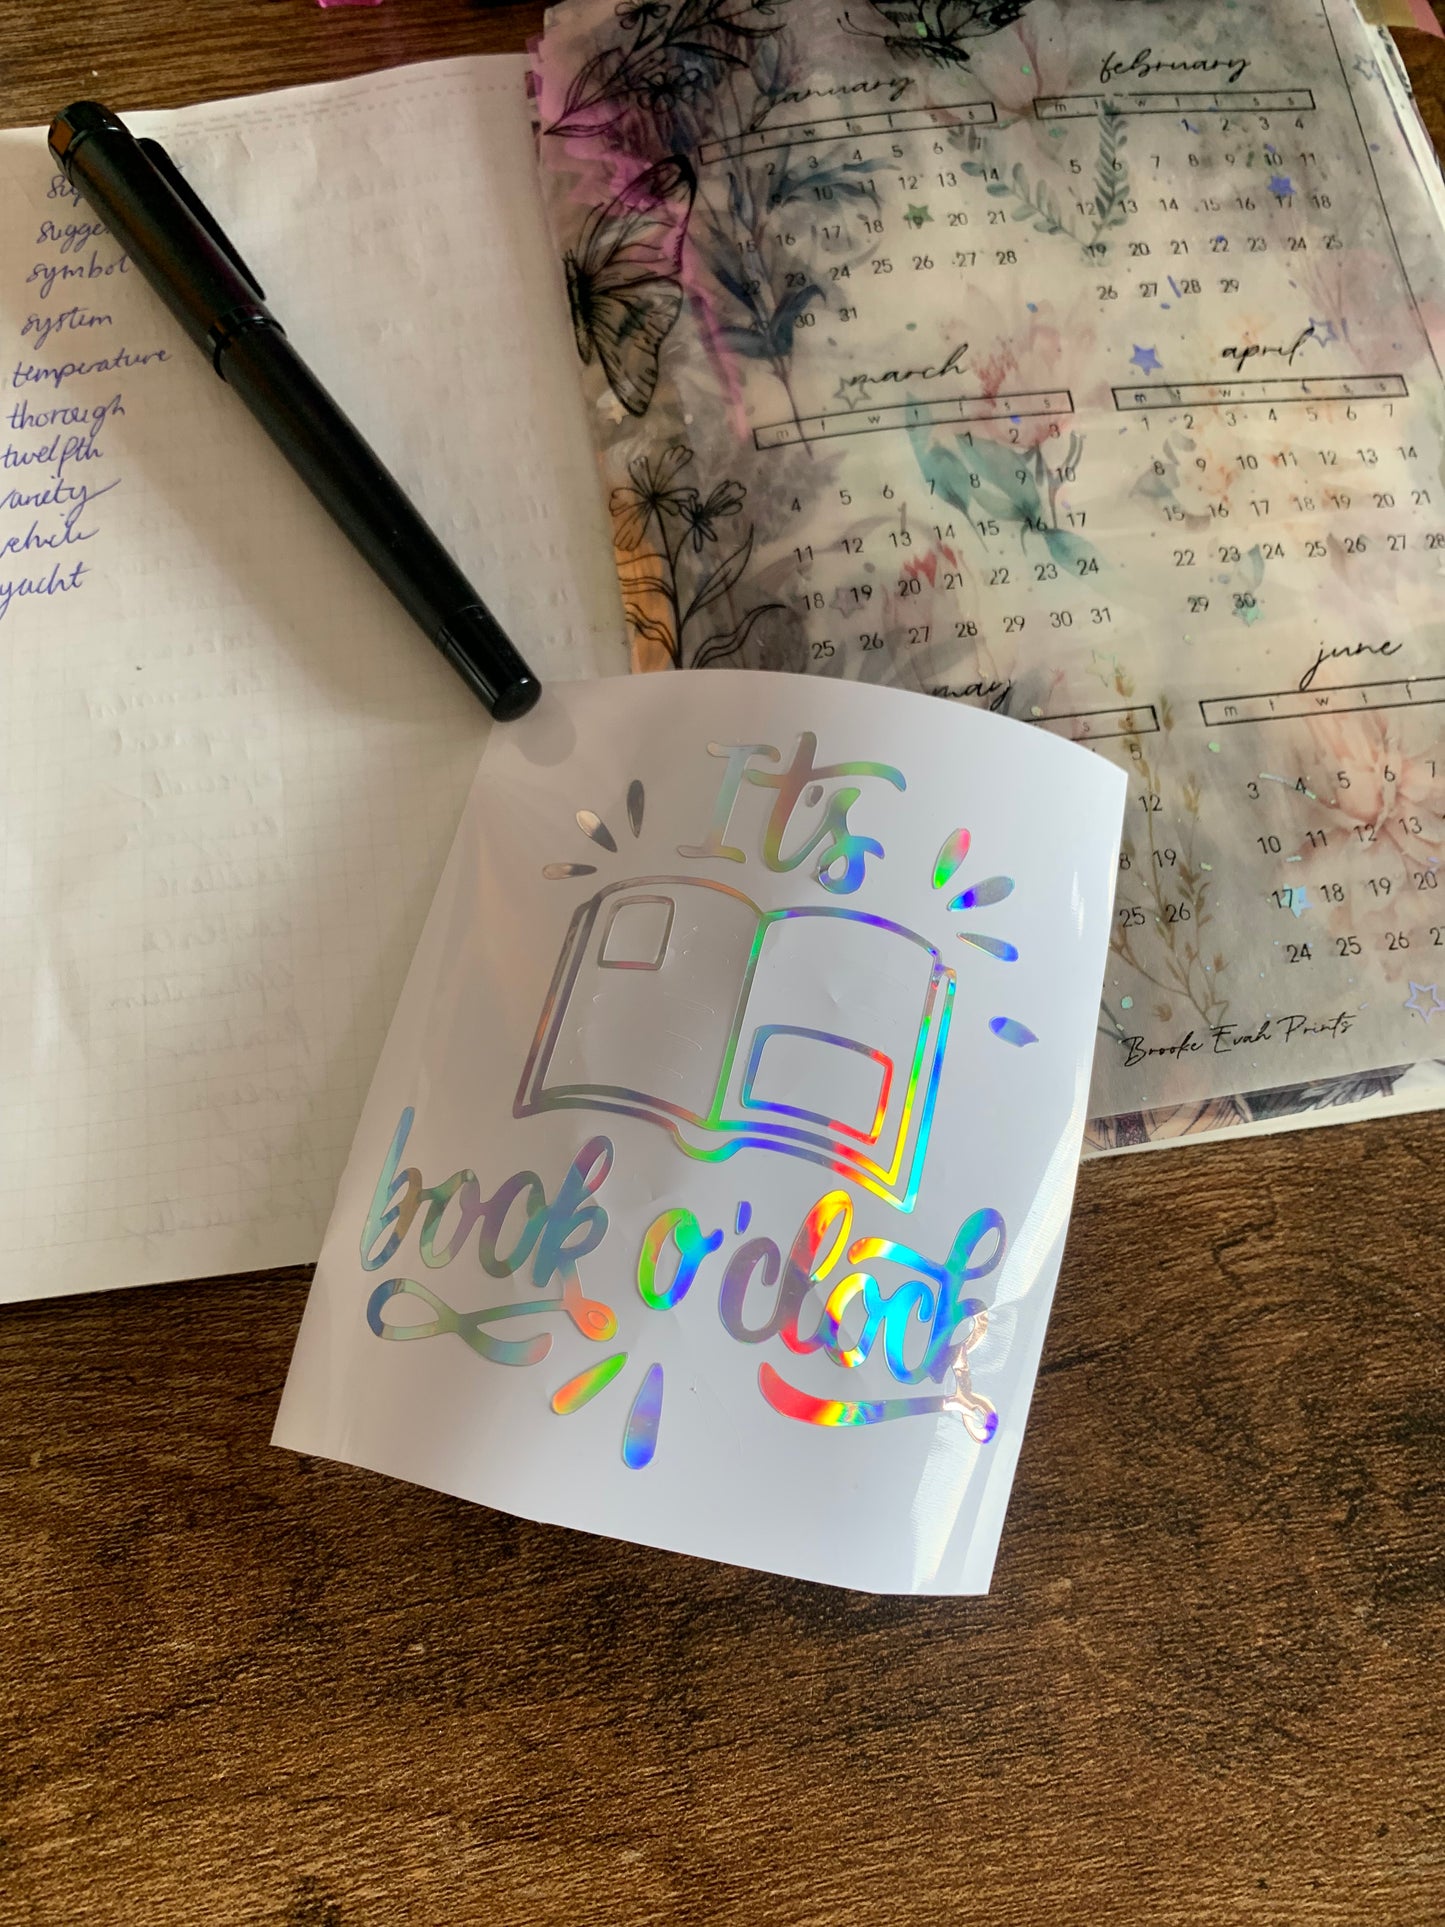 symbol
system
temperature
thorough
twelfth
vehicle
yacht
january
t w t f s s
1 2 3 4 5 6 7
10 11 12 13 14
15 16 17 18 19 20 21
22 23 24 25 26 27 28
30 31
february
m t w t f s s
1 2 3 4
5 6 7 8 9 10 11
12 13 14 15 16 17 18
19 20 21 22 23 24 25
26 27 28 29
march
m t w t f s s
1 2 3
4 5 6 7 8 9 10
11 12 13 14 15 16 17
18 19 20 21 22 23 24
25 26 27 28 29 30 31
april
m t w t f s s
1 2 3 4 5 6 7
8 9 10 11 12 13 14
15 16 17 18 19 20 21
22 23 24 25 26 27 28
29 30
may
s s
5
12
19
25 26
june
m t w t f
3 4 5 6 7
10 11 12 13
17 18 19 20
24 25 26
Brooke Evah Prints
It's
book o'clock